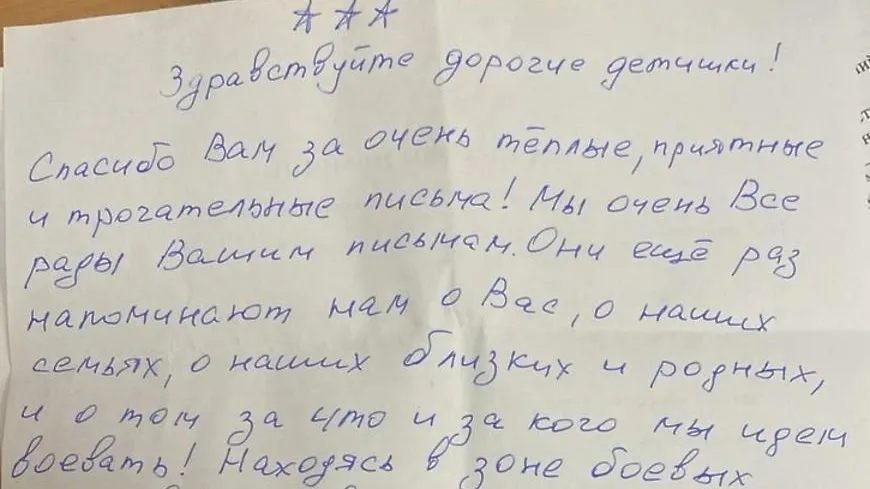 Здравствуйте дорогие детишки!
Спасибо Вам за очень тёплые, приятные
и трогательные письма! Мы очень Все
рады Вашим письмам. Они ещё раз
напоминают нам о Вас, о наших
семьях, о наших близких и родных,
и о том за что и за кого мы идем
воевать! Находясь в зоне боевых